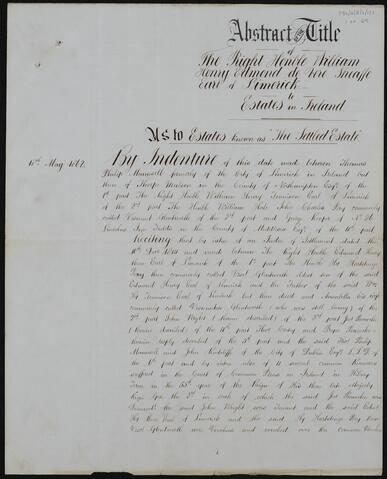 Abstract of Title
of
The Right Honble William
Henry Edmond de Vere Sheaffe
Earl of Limerick
to
Estates in Ireland
As to Estates known as "The Settled Estate"
10th May 1842. By Indenture of this date made between Thomas
Philip Maunsell formerly of the City of Limerick in Ireland but
then of Thorpe Malsor in the County of Northampton Esqr. of the
1st part The Right Honble William Henry Tennison Earl of Limerick
of the 2nd part The Honble William Hale John Charles Pery commonly
called Viscount Glentworth of the 3rd part and George
Lincolns Inn Fields in the County of Middlesex Esqr. of the 4th part
Reciting that by virtue of an Indre of Settlement dated the
and made between The Right Honble Edmund Henry
then Earl of Limerick of the 1st part The Honble Hy Hartstonge
Pery then commonly called Visct Glentworth eldest son of the said
Edmund Henry Earl of Limerick and the Father of the said Wm
Hy Tennison Earl of Limerick but then decd and Annabella his wife
commonly called Viscountess Glentworth (who was still living) of the
2nd part John Wright &
of the 4th part Thos
of the 5th part and the said Thos Philip
Maunsell and John of the City of Dublin Esqr. L.L.D. of
the 6th part and by virtue also of several common Recoveries
suffered in the Court of Common Pleas in Ireland in Hilary
Term in the 55th year of the Reign of His then late Majesty
King Geo. the 3rd in each of which the said
Demandt the said John Wright was Tenant and the said Edmd
Hy then Earl of Limerick and the said Hy Hartstonge Pery then
Visct Glentworth were Vouchees and vouched over the common Vouchee